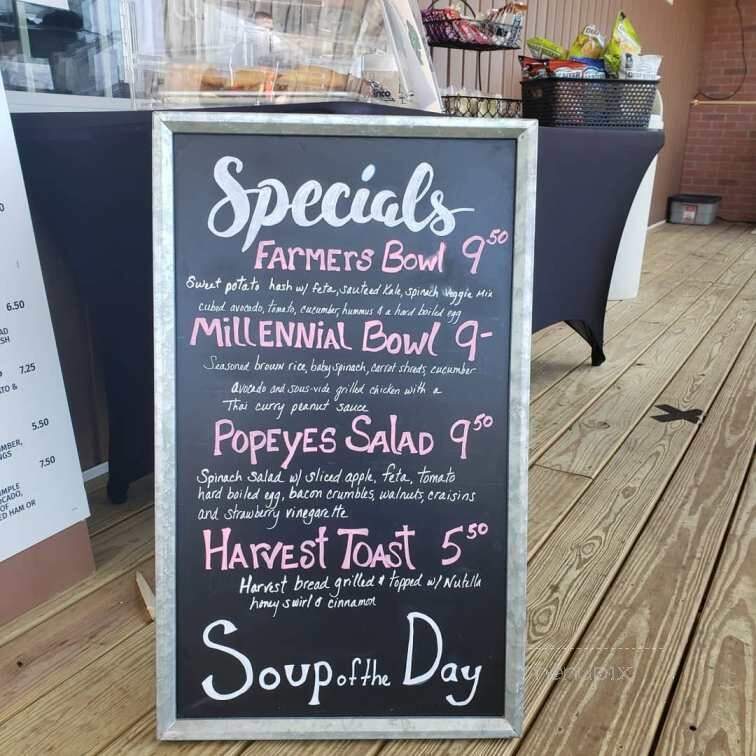 Specials
Farmers Bowl 9.50
Sweet potato hash w/ feta, sauteed kale, spinach veggie mix
cubed avocado, tomato, cucumber, hummus & a hard boiled egg
Millennial Bowl 9-
Seasoned brown rice, baby spinach, carrot shreds, cucumber
avocado and sous-vide grilled chicken with a
Thai curry peanut sauce
Popeyes Salad 9.50
Spinach salad w/ sliced apple, feta, tomato
hard boiled egg, bacon crumbles, walnuts, craisins
and strawberry vinegarette
Harvest Toast 5.50
Harvest bread grilled & topped w/ Nutella
honey swirl & cinnamon
Soup of the Day
6.50
7.25
5.50
7.50
ED HAM OR
menupix